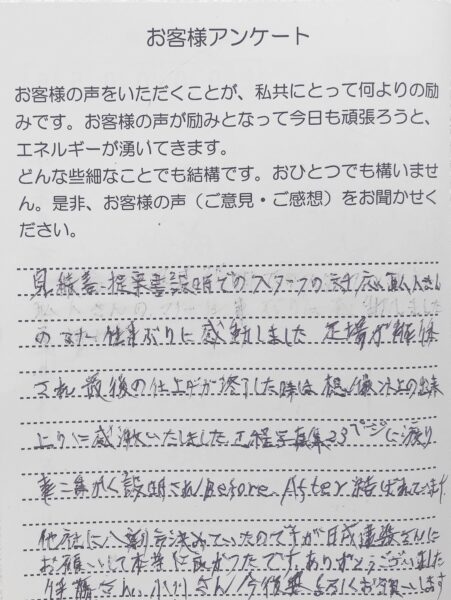 お客様アンケート
お客様の声をいただくことが、私共にとって何よりの励
みです。お客様の声が励みとなって今日も頑張ろうと、
エネルギーが湧いてきます。
どんな些細なことでも結構です。おひとつでも構いませ
ん。是非、お客様の声（ご意見・ご感想）をお聞かせく
ださい。
見積書・提案書説明時でのスタッフの対応、職人さん
の 仕事ぶりに感動しました 足場が解体
され最後の仕上げが終了した時は想像以上の出来
上りに感激いたしました 工程写真集23ページに渡り
説明され Before、After 結ばれています
他社に八割方決めていたのですが日成建装さんに
お願いして本当に良かったです。ありがとうございました
伊藤さん、小川さん 今後共よろしくお願いします